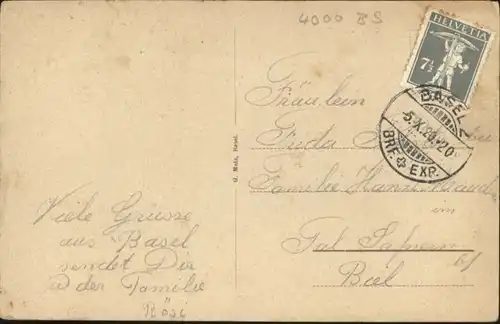 4000 BS
HELVETIA
7½
BASEL 2
5.X.20.-20
BRF. EXP.
G. Metz, Basel.
Fräulein
Frida
Familie
im
Tal
Biel
Viele Grüsse
aus Basel
sendet Dir
u der Familie
Rösi